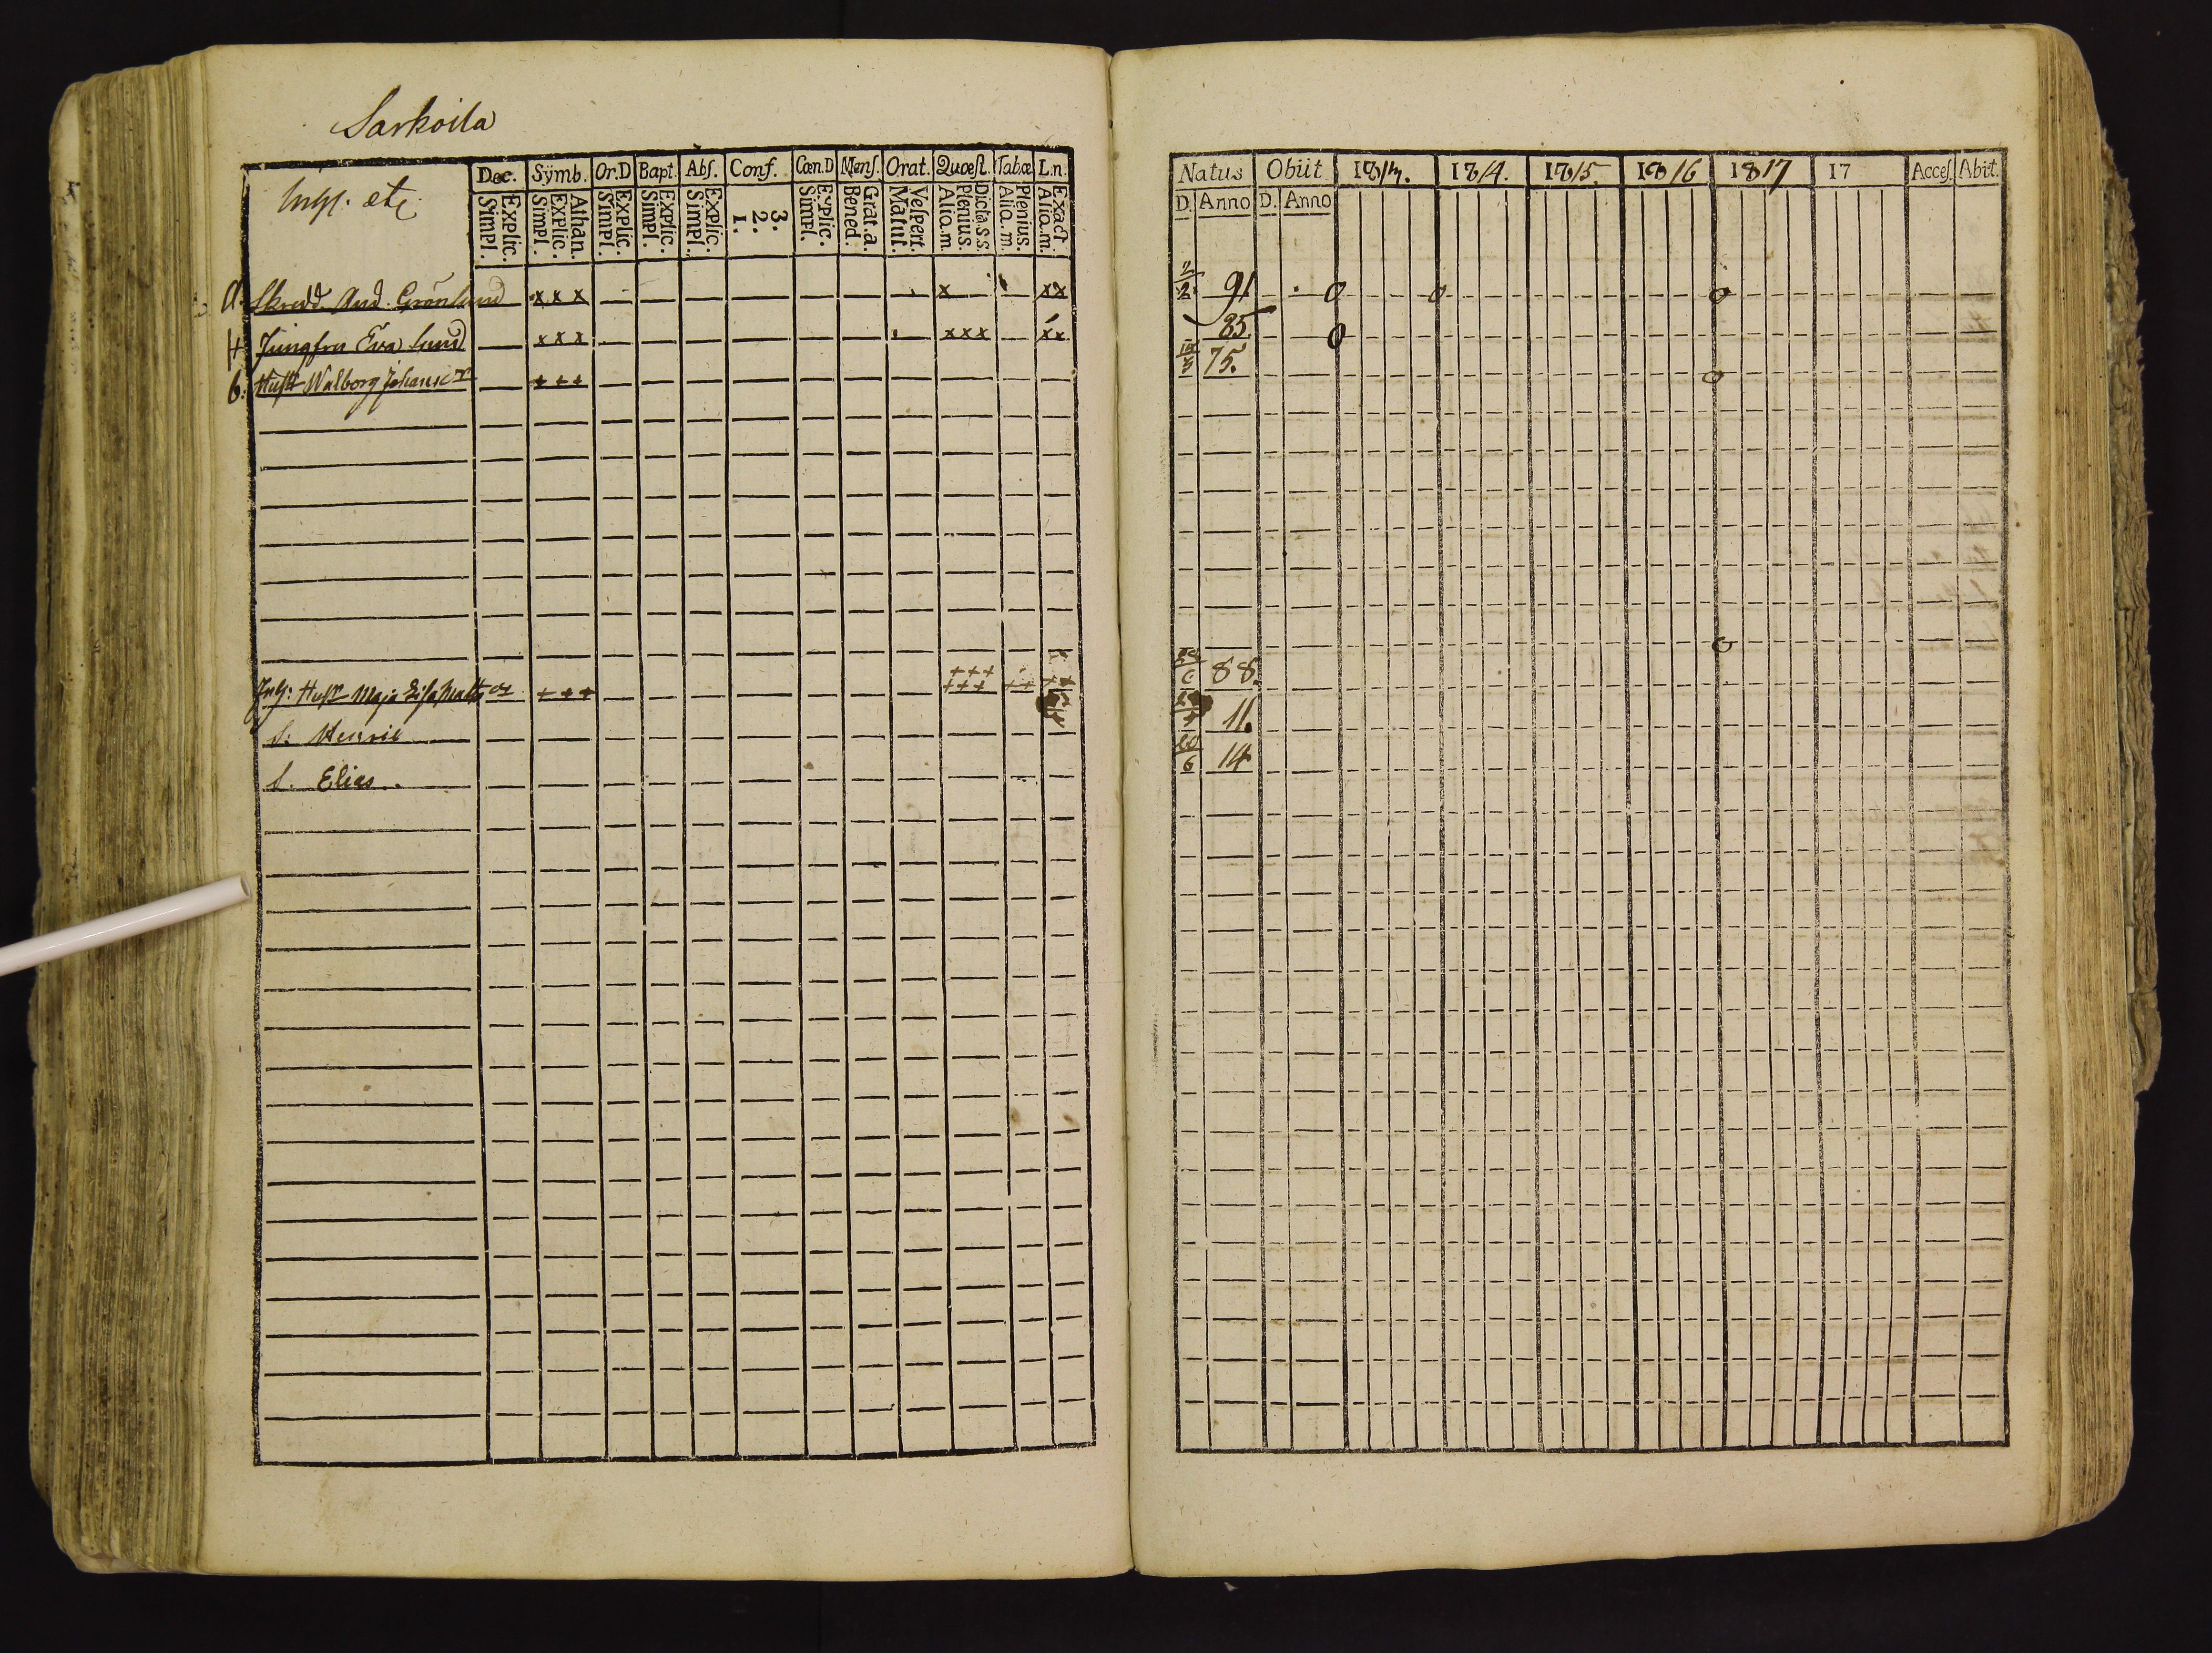 Sarkoila
Inhs. etc.
Dec. Symb. Or.D Bapt. Abs. Conf. Cœn.D Mens. Orat. Quæst. Tab.œ L.n.
Explic. Simpl. Athan. Explic. Simpl. Explic. Simpl. Explic. Simpl. Explic. Simpl. 3. 2. 1. Explic. Simpl. Grat.a. Bened. Vespert. Matut. Dicta.s.s. Plenius. Alio.m. Plenius. Alia.m. Exact. Alio.m.
Skredd. And. Grönlund xxx x xx
Jungfru Eva Lund xxx xxx xx
6. Hust. Walborg Johansdr +++
Inh: Hustr Maja Lisa Mattsdr +++ +++ +++ ++
S: Henric
S. Elias
Natus Obiit 1813. 1814. 1815. 1816 1817 17 Acces. Abiit.
D. Anno D. Anno
91 0 0 0
85 0
75. 0
0
88.
11.
20/6 14